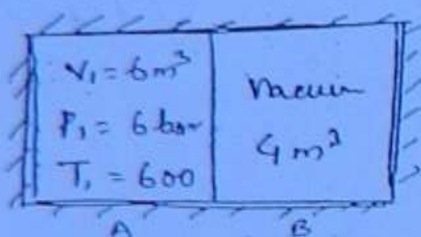 V₁ = 6m³
P₁ = 6 bar
T₁ = 600
Vacuum
4 m³
A B